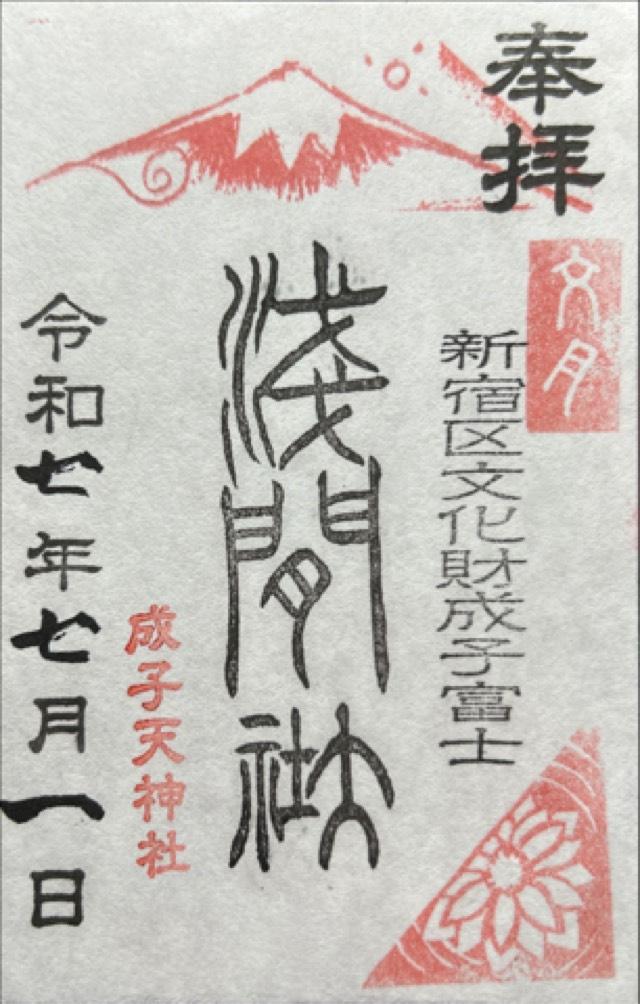 奉拝
文月
新宿区文化財成子富士
淺間社
成子天神社
令和七年七月一日